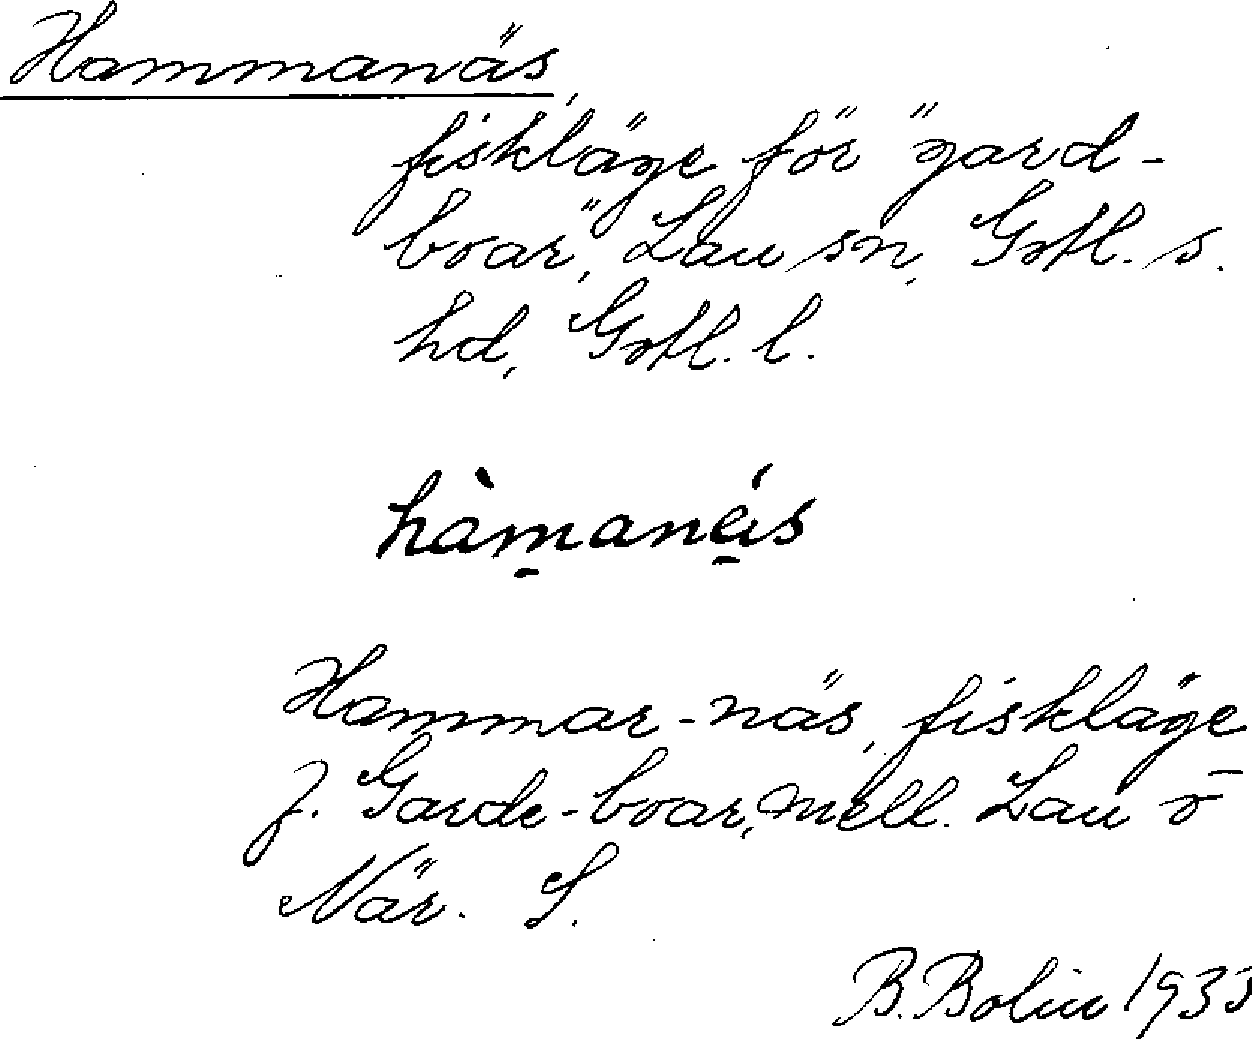 Hammanäs,
fiskläge för "gard-
boar", Lau sn, Gotl. s.
hd, Gotl. l.
hàm̱anä́s
Hammar-näs, fiskläge
f. Garde-boar, mell. Lau o
När. S.
B. Bolin 1933